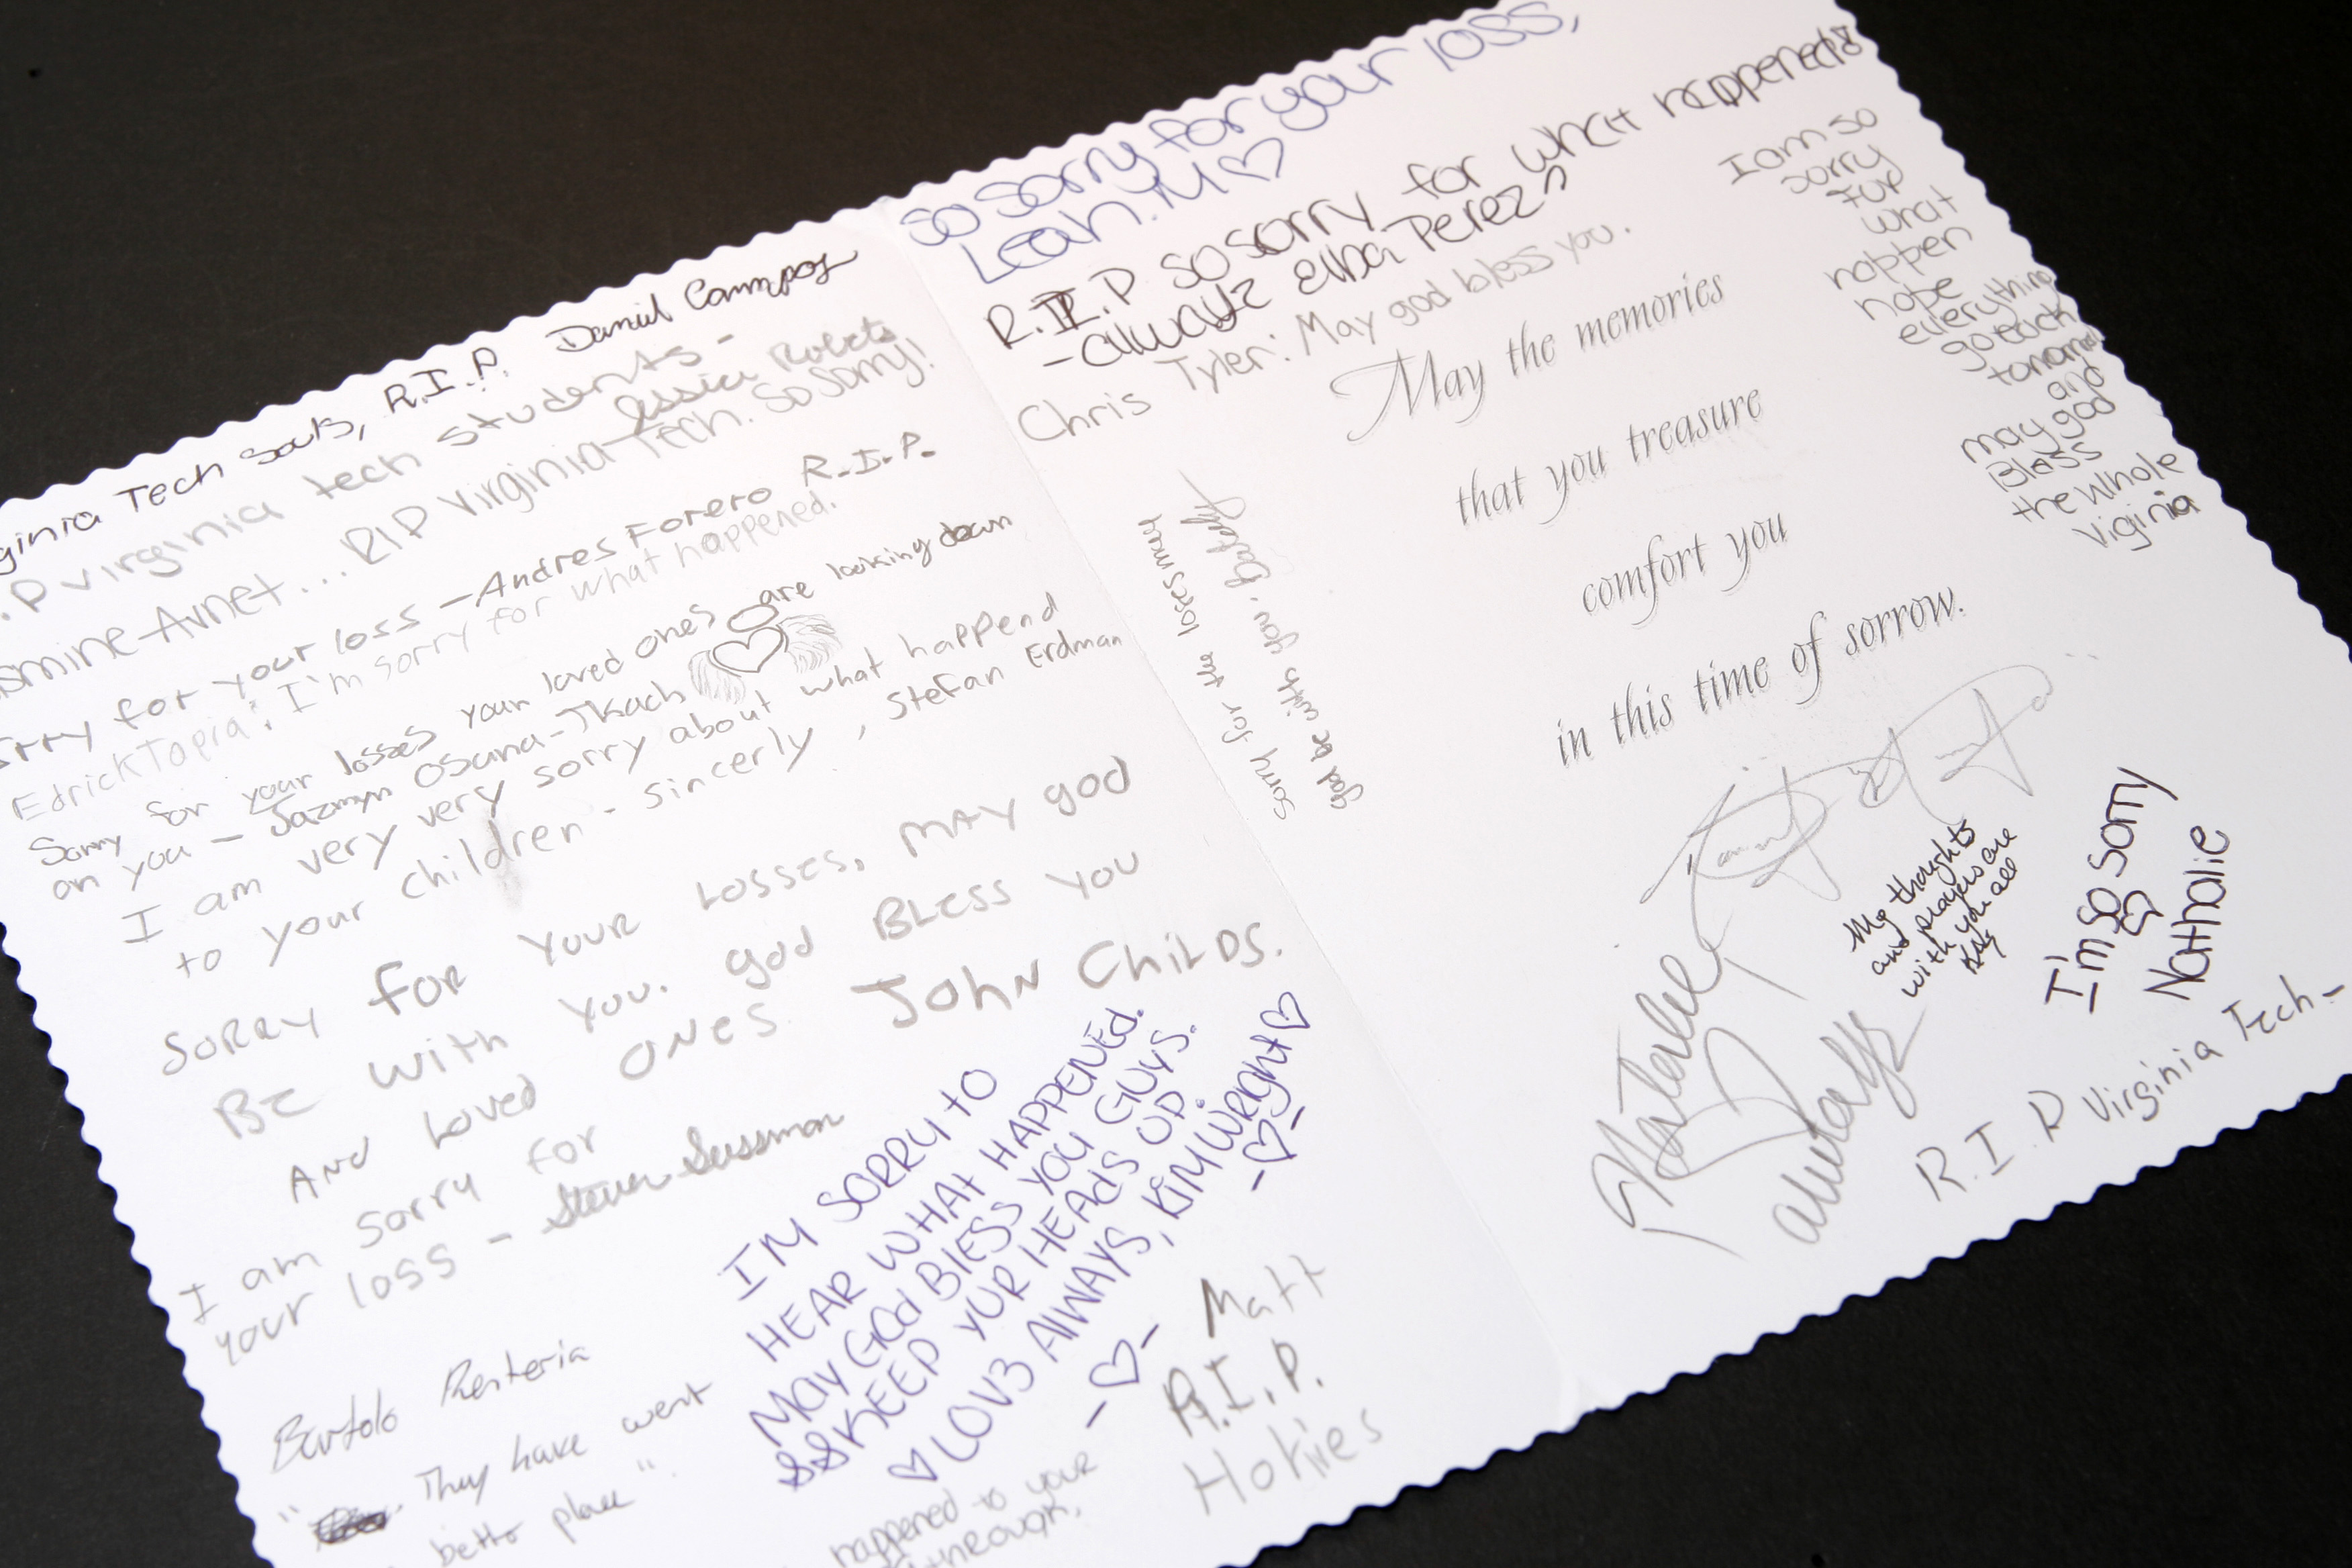 Tech souls, R.I.P. Daniel Campos
virginia tech students -
Jessica Roberts
Avnet... RIP Virginia Tech. So sorry!
for your loss - Andres Forero R.I.P.
Edrick Tapia: I'm sorry for what happened.
Sorry for your losses your loved ones are looking down
on you - Jazmyn Osuna-Tkach
I am very very sorry about what happend
to your children - sincerly, Stefan Erdman
Sorry for your losses, may god
Be with you. god Bless you
And loved ones. John Childs.
I am sorry for
your loss - Steven Sussman
Bartolo Renteria
" They have went
better place".
I'M SORRY TO
HEAR WHAT HAPPENED.
MAY GOd BlESS YOU GUYS.
KEEP YUR HEAdS UP.
♡ LOV3 AlWAYS, KiM WRight ♡
-♡-
-♡-
happened to your
through.
Matt
R.I.P.
Hokies
so sorry for your loss,
Leah.M ♡
R.I.P so sorry for what happened
- alwayz Elba Perez
Chris Tyler: May god bless you.
May the memories
that you treasure
comfort you
in this time of sorrow.
I am so
sorry
fur
what
happen
hope
everything
go back
and
may god
Blass
the whole
Viginia
sorry for the losses may
god be with you.
My thoughts
and prayers are
with you all
I'm so sorry
♡
Nathalie
alwayz
R.I.P Virginia Tech-